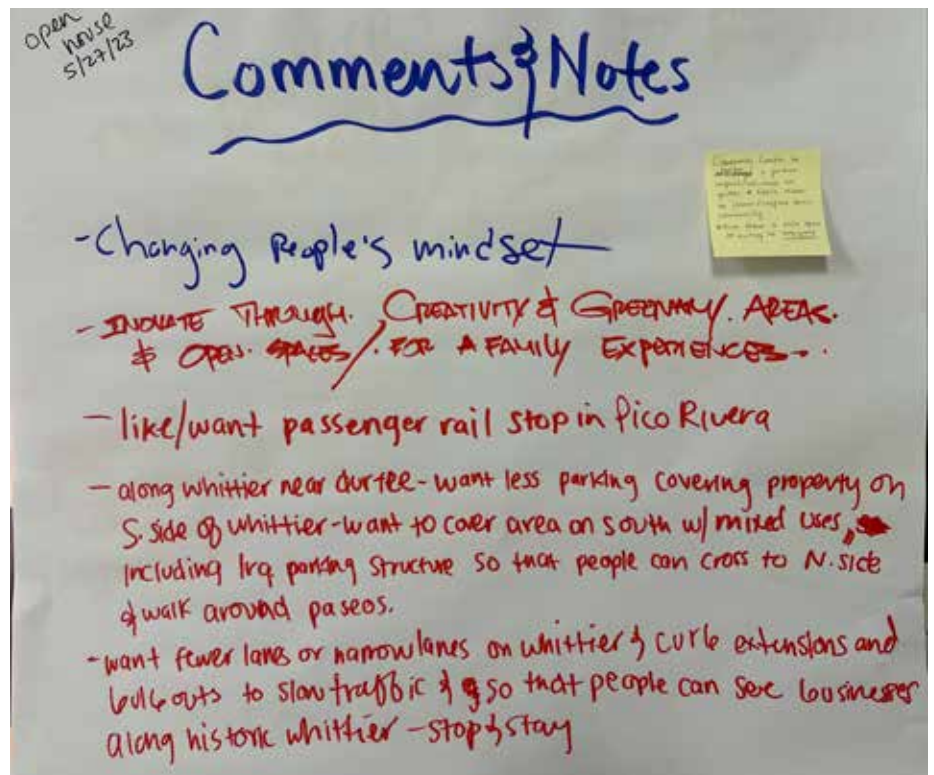 open
house
5/27/23
Comments & Notes
-Changing People's mindset
- INOVATE THROUGH. CREATIVITY & GREENARY. AREAS.
& OPEN. SPACES/. FOR A FAMILY EXPERIENCES..
- like/want passenger rail stop in Pico Rivera
- along whittier near durfee - want less parking covering property on
S. side of whittier - want to cover area on south w/ mixed uses,
including lrg parking structure so that people can cross to N. side
& walk around paseos.
- want fewer lanes or narrow lanes on whittier & curb extensions and
bulb outs to slow traffic & so that people can see businesses
along historic whittier - stop & stay
community